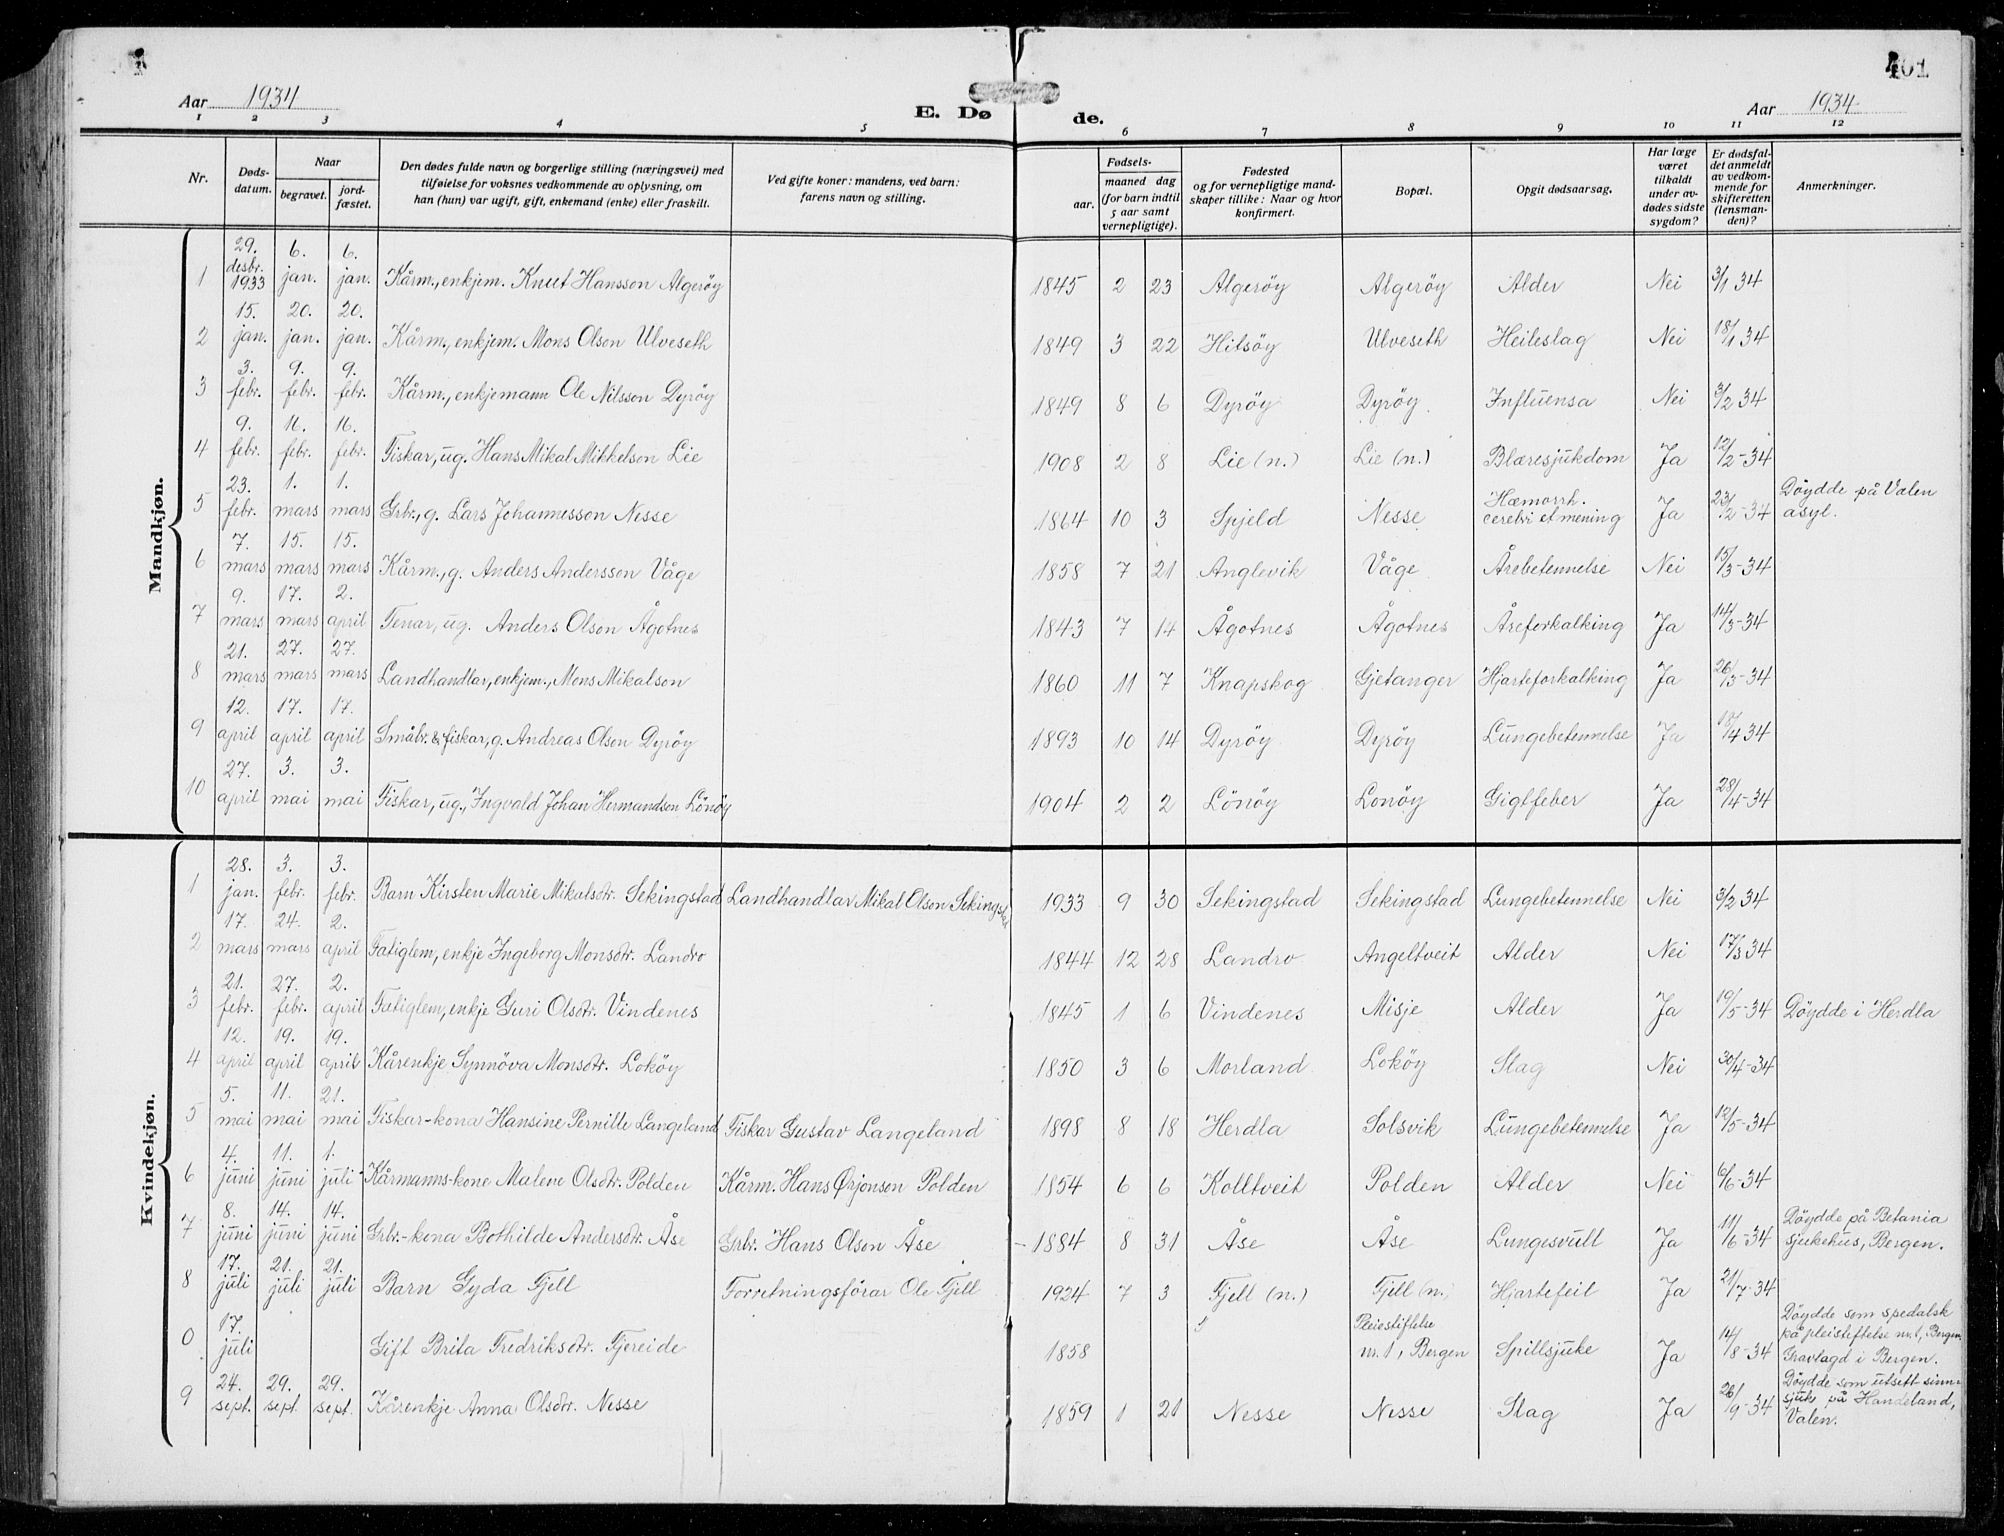 Aar 1934
E. Døde.
Aar 1934
401
1 2 3 4 5 6 7 8 9 10 11 12
Nr.
Døds-datum.
Naar
begravet.
jord-fæstet.
Den dødes fulde navn og borgerlige stilling (næringsvei) med
tilføielse for voksnes vedkommende av oplysning, om
han (hun) var ugift, gift, enkemand (enke) eller fraskilt.
Ved gifte koner: mandens, ved barn:
farens navn og stilling.
Fødsels-
aar.
maaned dag
(for barn indtil
5 aar samt
vernepligtige).
Fødested
og for vernepligtige mand-
skaper tillike: Naar og hvor
konfirmert.
Bopæl.
Opgit dødsaarsag.
Har læge
været
tilkaldt
under av-
dødes sidste
sygdom?
Er dødsfal-
det anmeldt
av vedkom-
mende for
skifteretten
(lensman-
den)?
Anmerkninger.
Mandkjøn.
1 29. desbr. 1933 6. jan. 6. jan. Kårm., enkjem. Knut Hansson Algerøy 1845 2 23 Algerøy Algerøy Alder Nei 3/1 34
2 15. jan. 20. jan. 20. jan. Kårm., enkjem. Mons Olson Ulveseth 1849 3 22 Hitsöy Ulveseth Heileslag Nei 18/1 34
3 3. febr. 9. febr. 9. febr. Kårm., enkjemann Ole Nilsson Dyrøy 1849 8 6 Dyrøy Dyrøy Influensa Nei 3/2 34
4 9. febr. 16. febr. 16. febr. Fiskar, ug. Hans Mikal Mikkelson Lie 1908 2 8 Lie (n.) Lie (n.) Blæresjukdom Ja 12/2-34
5 23. febr. 1. mars 1. mars Grbr., g. Lars Johannesson Nesse 1864 10 3 Spjeld Nesse Hæmorrh. cerebri et mening Ja 23/2-34 Döydde på Valen asyl.
6 7. mars 15. mars 15. mars Kårm., g. Anders Andersson Våge 1858 7 21 Anglevik Våge Årebetennelse Nei 15/3-34
7 9. mars 17. mars 2. april Tenar, ug. Anders Olson Ågotnes 1843 7 14 Ågotnes Ågotnes Åreforkalking Ja 14/3-34
8 21. mars 27. mars 27. mars Landhandlar, enkjem., Mons Mikalson 1860 11 7 Knapskog Gjetanger Hjarteforkalking Ja 26/3-34
9 12. april 17. april 17. april Småbr. & fiskar, g. Andreas Olson Dyröy 1893 10 14 Dyröy Dyröy Lungebetennelse Ja 18/4 34
10 27. april 3. mai 3. mai Fiskar, ug., Ingvald Johan Hermandson Lönöy 1904 2 2 Lönöy Lonöy Gigtfeber Ja 28/4-34
Kvindekjøn.
1 28. jan. 3. febr. 3. febr. Barn Kirsten Marie Mikalsdtr. Sekingstad Landhandlar Mikal Olson Sekingstad 1933 9 30 Sekingstad Sekingstad Lungebetennelse Nei 3/2 34
2 17. mars 24. mars 2. april Fatiglem, enkje Ingeborg Monsdtr. Landro 1844 12 28 Landro Angeltveit Alder Nei 17/3 34
3 21. febr. 27. febr. 2. april Fatiglem, enkje Guri Olsdtr. Vindenes 1845 1 6 Vindenes Misje Alder Ja 19/5-34 Döydde i Herdla
4 12. april 19. april 19. april Kårenkje Synnöva Monsdtr. Loköy 1850 3 6 Morland Loköy Slag Nei 30/4-34
5 5. mai 11. mai 21. mai Fiskar-kona Hansine Pernille Langeland Fiskar Gustav Langeland 1898 8 18 Herdla Solsvik Lungebetennelse Ja 12/5-34
6 4. juni 11. juni 1. juli Kårmanns-kone Malene Olsdtr. Polden Kårm. Hans Ørjonson Polden 1854 6 6 Kolltveit Polden Alder Nei 6/6-34
7 8. juni 14. juni 14. juni Grbr-kona Bothilde Andersdtr. Åse Grbr. Hans Olson Åse 1884 8 31 Åse Åse Lungesvult Ja 11/6-34 Döydde på Betania sjukehus, Bergen.
8 17. juli 21. juli 21. juli Barn Gyda Fjell Forretningsförar Ole Fjell 1924 7 3 Fjell (n.) Fjell (n.) Hjartefeil Ja 21/7-34
0 17. juli Gift Brita Fredriksdtr. Fjereide 1858 Pleiestiftelse nr. 1, Bergen Spillsjuke Ja 14/8-34 Döydde som spedalsk på pleistiftelse nr. 1, Bergen. Gravlagd i Bergen.
9 24. sept. 29. sept. 29. sept. Kårenkje Anna Olsdtr. Nesse 1859 1 21 Nesse Nesse Slag Ja 26/9-34 Döydde som utsett sinnsjuk på Handeland, Valen.